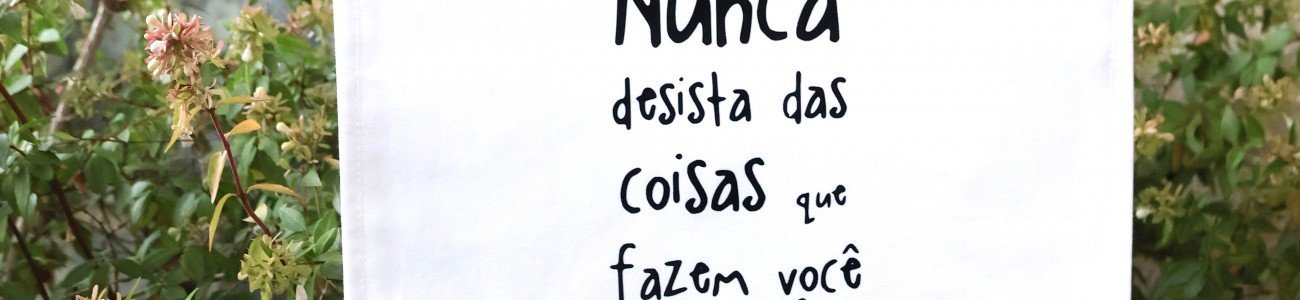 Nunca
desista das
coisas que
fazem você